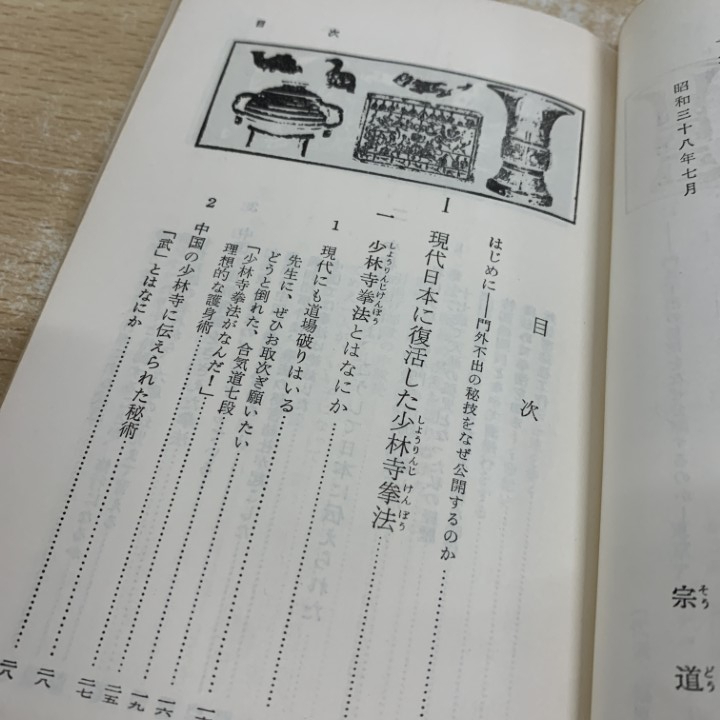 昭和三十八年七月
宗
そう
道
どう
目次
目次
はじめに――門外不出の秘技をなぜ公開するのか
I 現代日本に復活した少林寺拳法
しょうりんじ けんぽう
一 少林寺拳法とはなにか
しょうりんじけんぽう
1 現代にも道場破りはいる
先生に、ぜひお取次ぎ願いたい
どうと倒れた、合気道七段
「少林寺拳法がなんだ！」
理想的な護身術
2 中国の少林寺に伝えられた秘術
「武」とはなにか
一六
一九
二五
二七
二八
二八